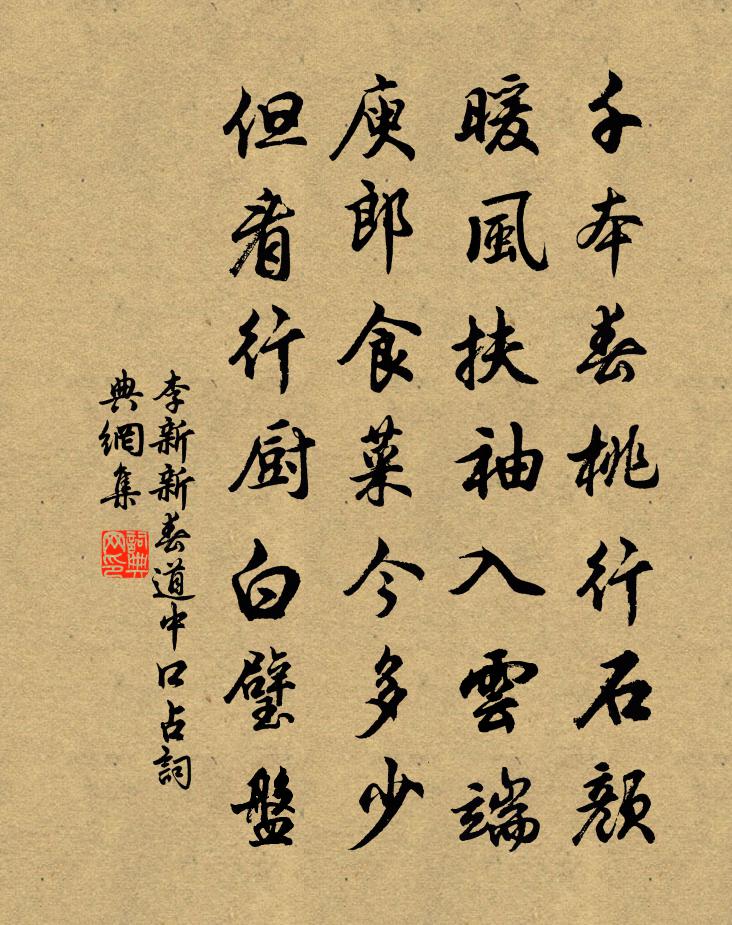 千本春桃行石顔
暖風扶袖入雲端
庾郎食菜今多少
但看行厨白璧盤
李新新春道中口占詞
典網集
詞典
网印